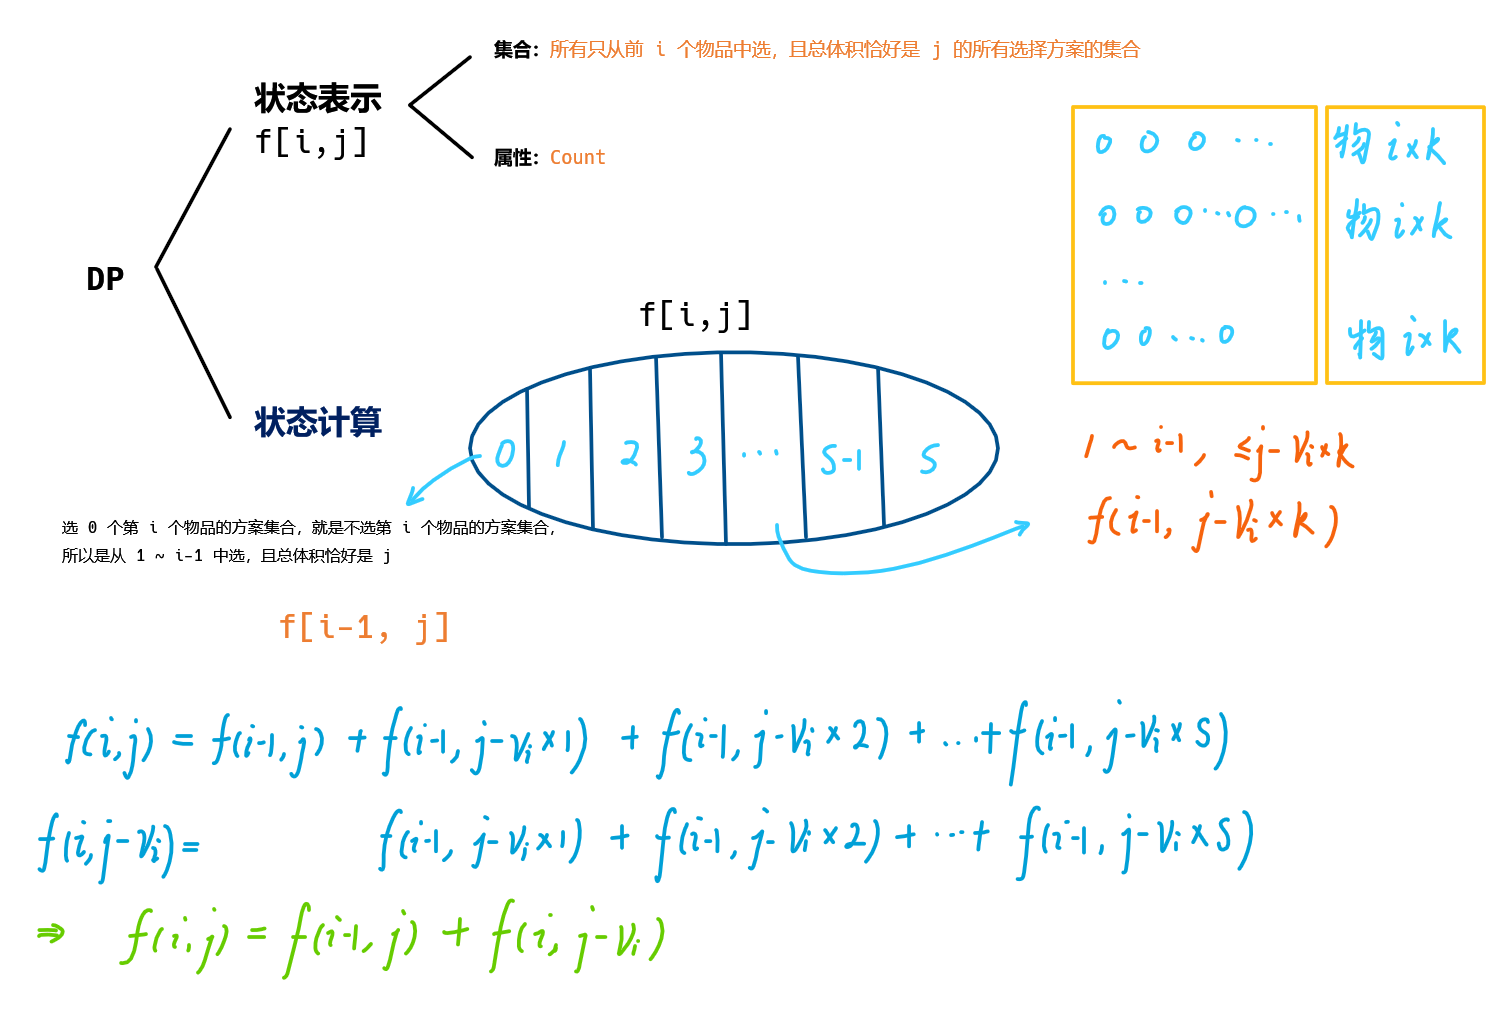 集合：所有只从前 i 个物品中选，且总体积恰好是 j 的所有选择方案的集合
状态表示
f[i,j]
属性：Count
DP
状态计算
f[i,j]
0 1 2 3 ... S-1 S
选 0 个第 i 个物品的方案集合，就是不选第 i 个物品的方案集合，
所以是从 1 ~ i-1 中选，且总体积恰好是 j
f[i-1, j]
0 0 0 ... 物 i×k
0 0 0 ... 0 ... 物 i×k
...
0 0 ... 0 物 i×k
1 ~ i-1, ≤j-Vi×k
f(i-1, j-Vi×k)
f(i,j) = f(i-1,j) + f(i-1, j-Vi×1) + f(i-1, j-Vi×2) + ... + f(i-1, j-Vi×S)
f(i,j-Vi) = f(i-1, j-Vi×1) + f(i-1, j-Vi×2) + ... + f(i-1, j-Vi×S)
⇒ f(i,j) = f(i-1, j) + f(i, j-Vi)